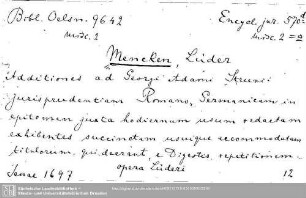 Bibl. Oelsn. 9642
Encycl. jur. 570d
misc. 2
misc. 2 = a
Mencken, Lüder
Additiones ad Georgi Adami Struvi
jurisprudentiam Romano, Germanicam in
epitomen juxta hodiernum usum redactam
exhibentes succinctam usuique accommodatam
titulorum, qui deerant, e Digestis, repetitionem
opera Lüderi
Jenae 1697
12
Sächsische Landesbibliothek -
Staats- und Universitätsbibliothek Dresden